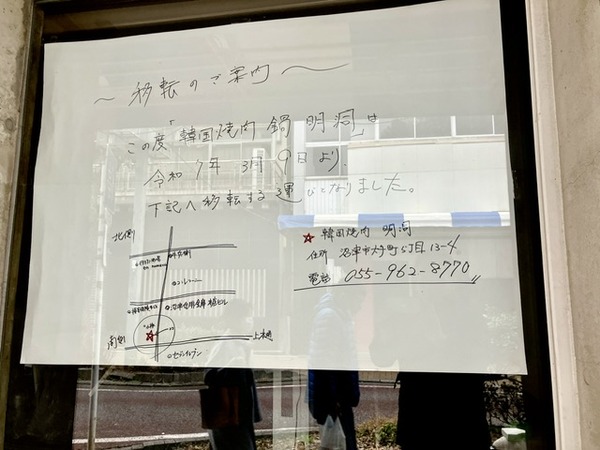 ～ 移転のご案内 ～
この度「韓国焼肉 鍋 明洞」は
令和7年 3月9日より
下記へ移転する運びとなりました。
北側
☆ 韓国焼肉 明洞
住所 沼津市大手町5丁目13-4
電話 055-962-8770
南側
上本通
○セブンイレブン